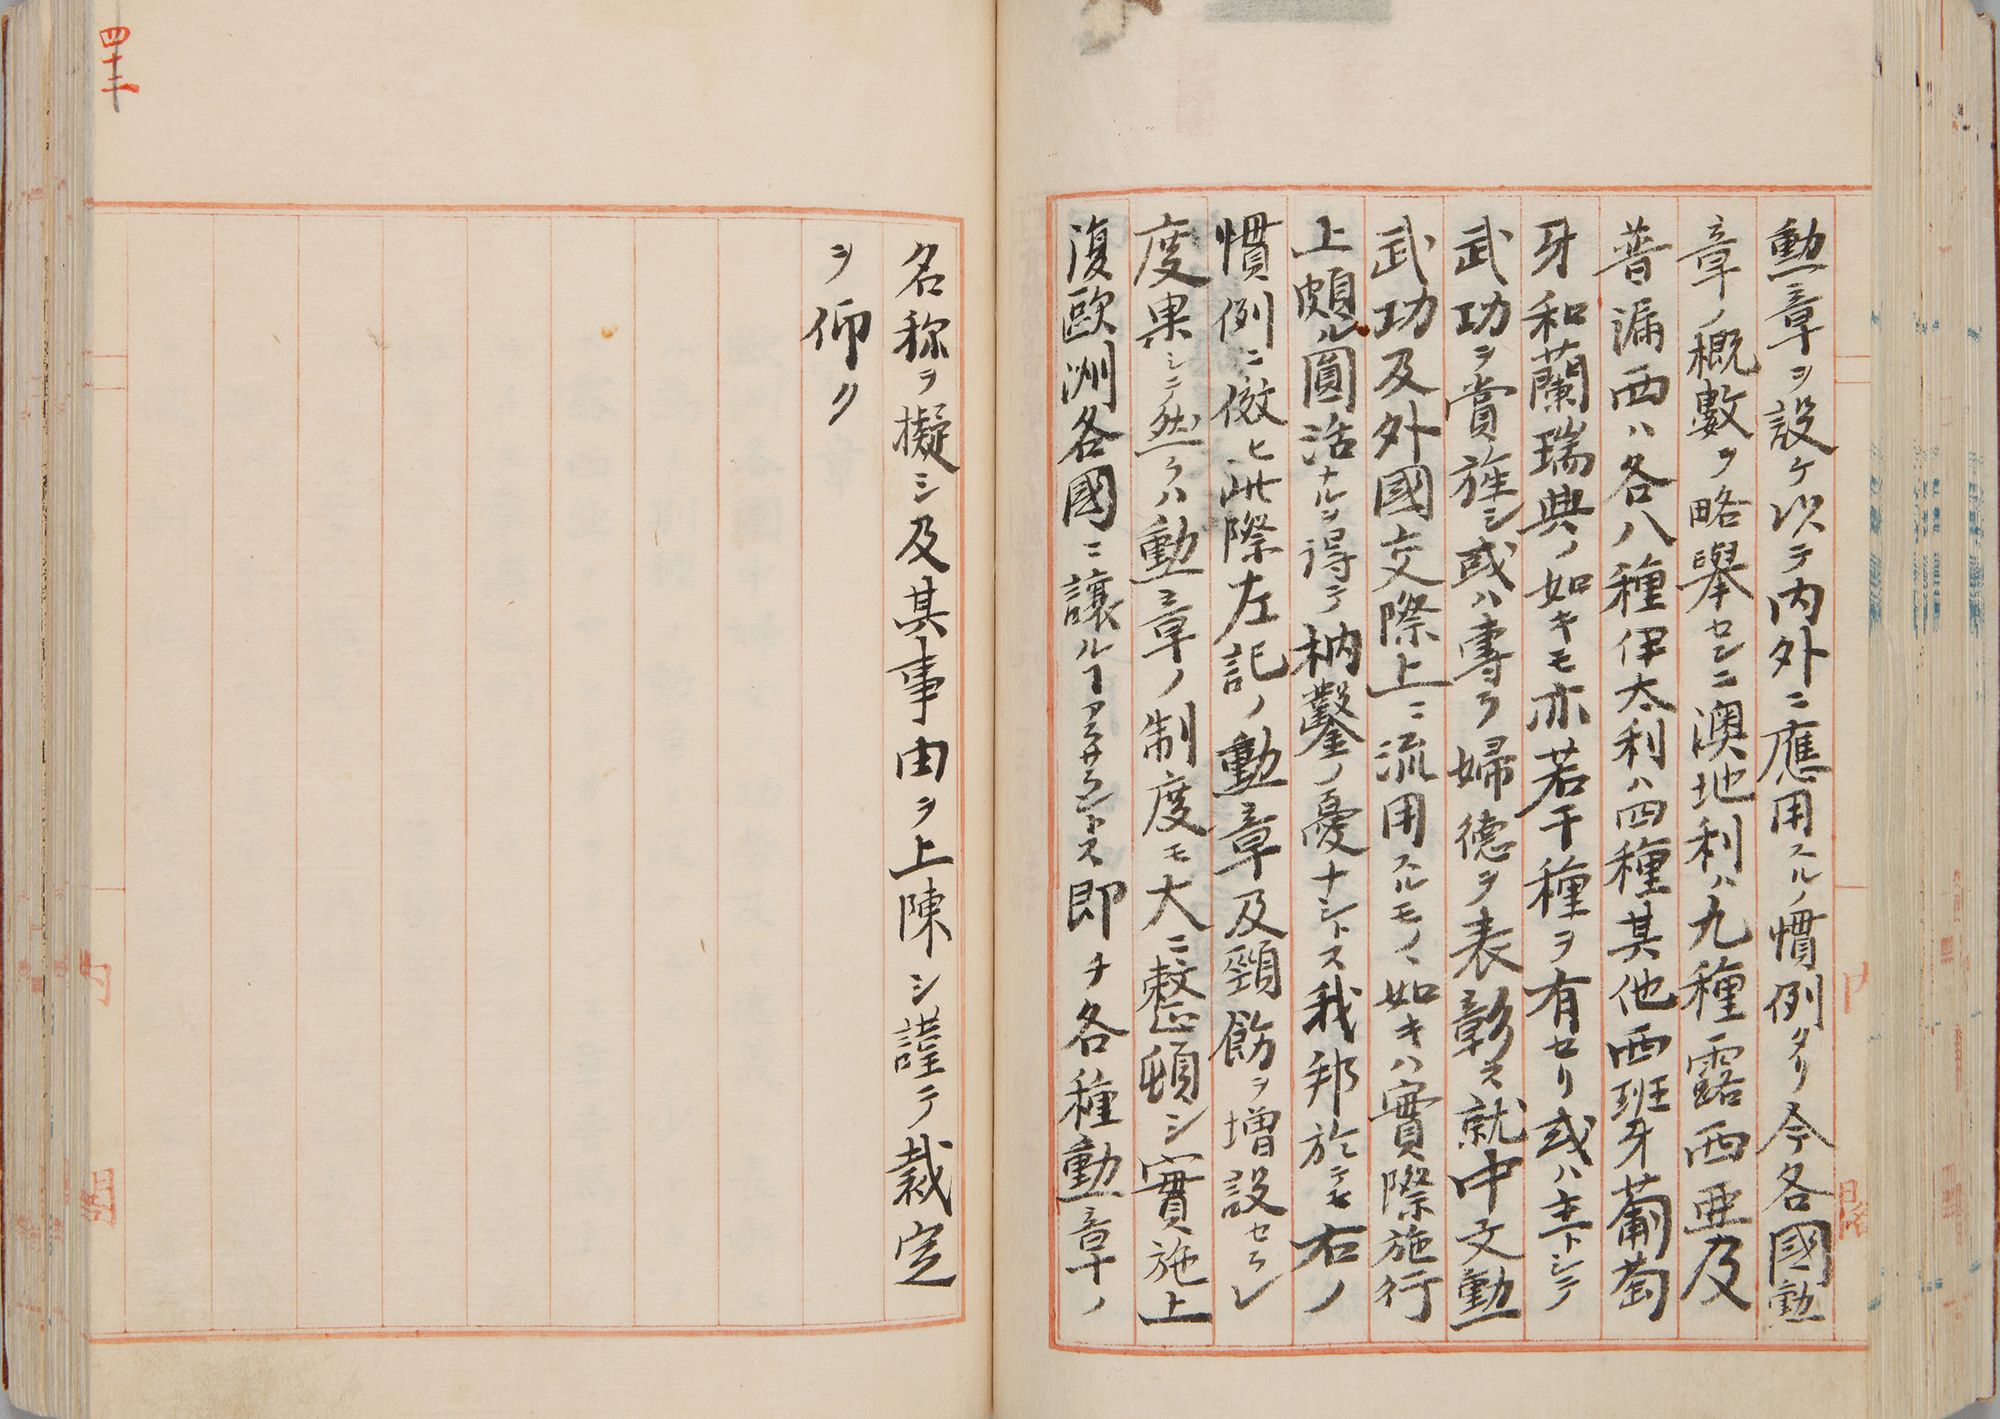 勳章ヲ設ケ以テ内外ニ應用スルノ慣例タリ今各國勳
章ノ概數ヲ略擧セシニ澳地利ハ九種露西亜及
普漏西ハ各八種伊太利ハ四種其他西班牙葡萄
牙和蘭瑞典ノ如キモ亦若干種ヲ有セリ或ハ主トシテ
武功ヲ賞旌シ或ハ専ラ婦德ヲ表彰ス就中文勳
武功及外國交際上ニ流用スルモノヽ如キハ實際施行
上頗ル圓活ナルヲ得テ枘鑿ノ憂ナシトス我邦於テモ右ノ
慣例ニ倣ヒ此際左記ノ勳章及頸飾ヲ増設セラレ
度果シテ然ラハ勳章ノ制度モ大ニ整頓シ實施上
復歐洲各國ニ讓ルヿアラサラントス即チ各種勳章ノ
名称ヲ擬シ及其事由ヲ上陳シ謹テ裁定
ヲ仰ク
四十二